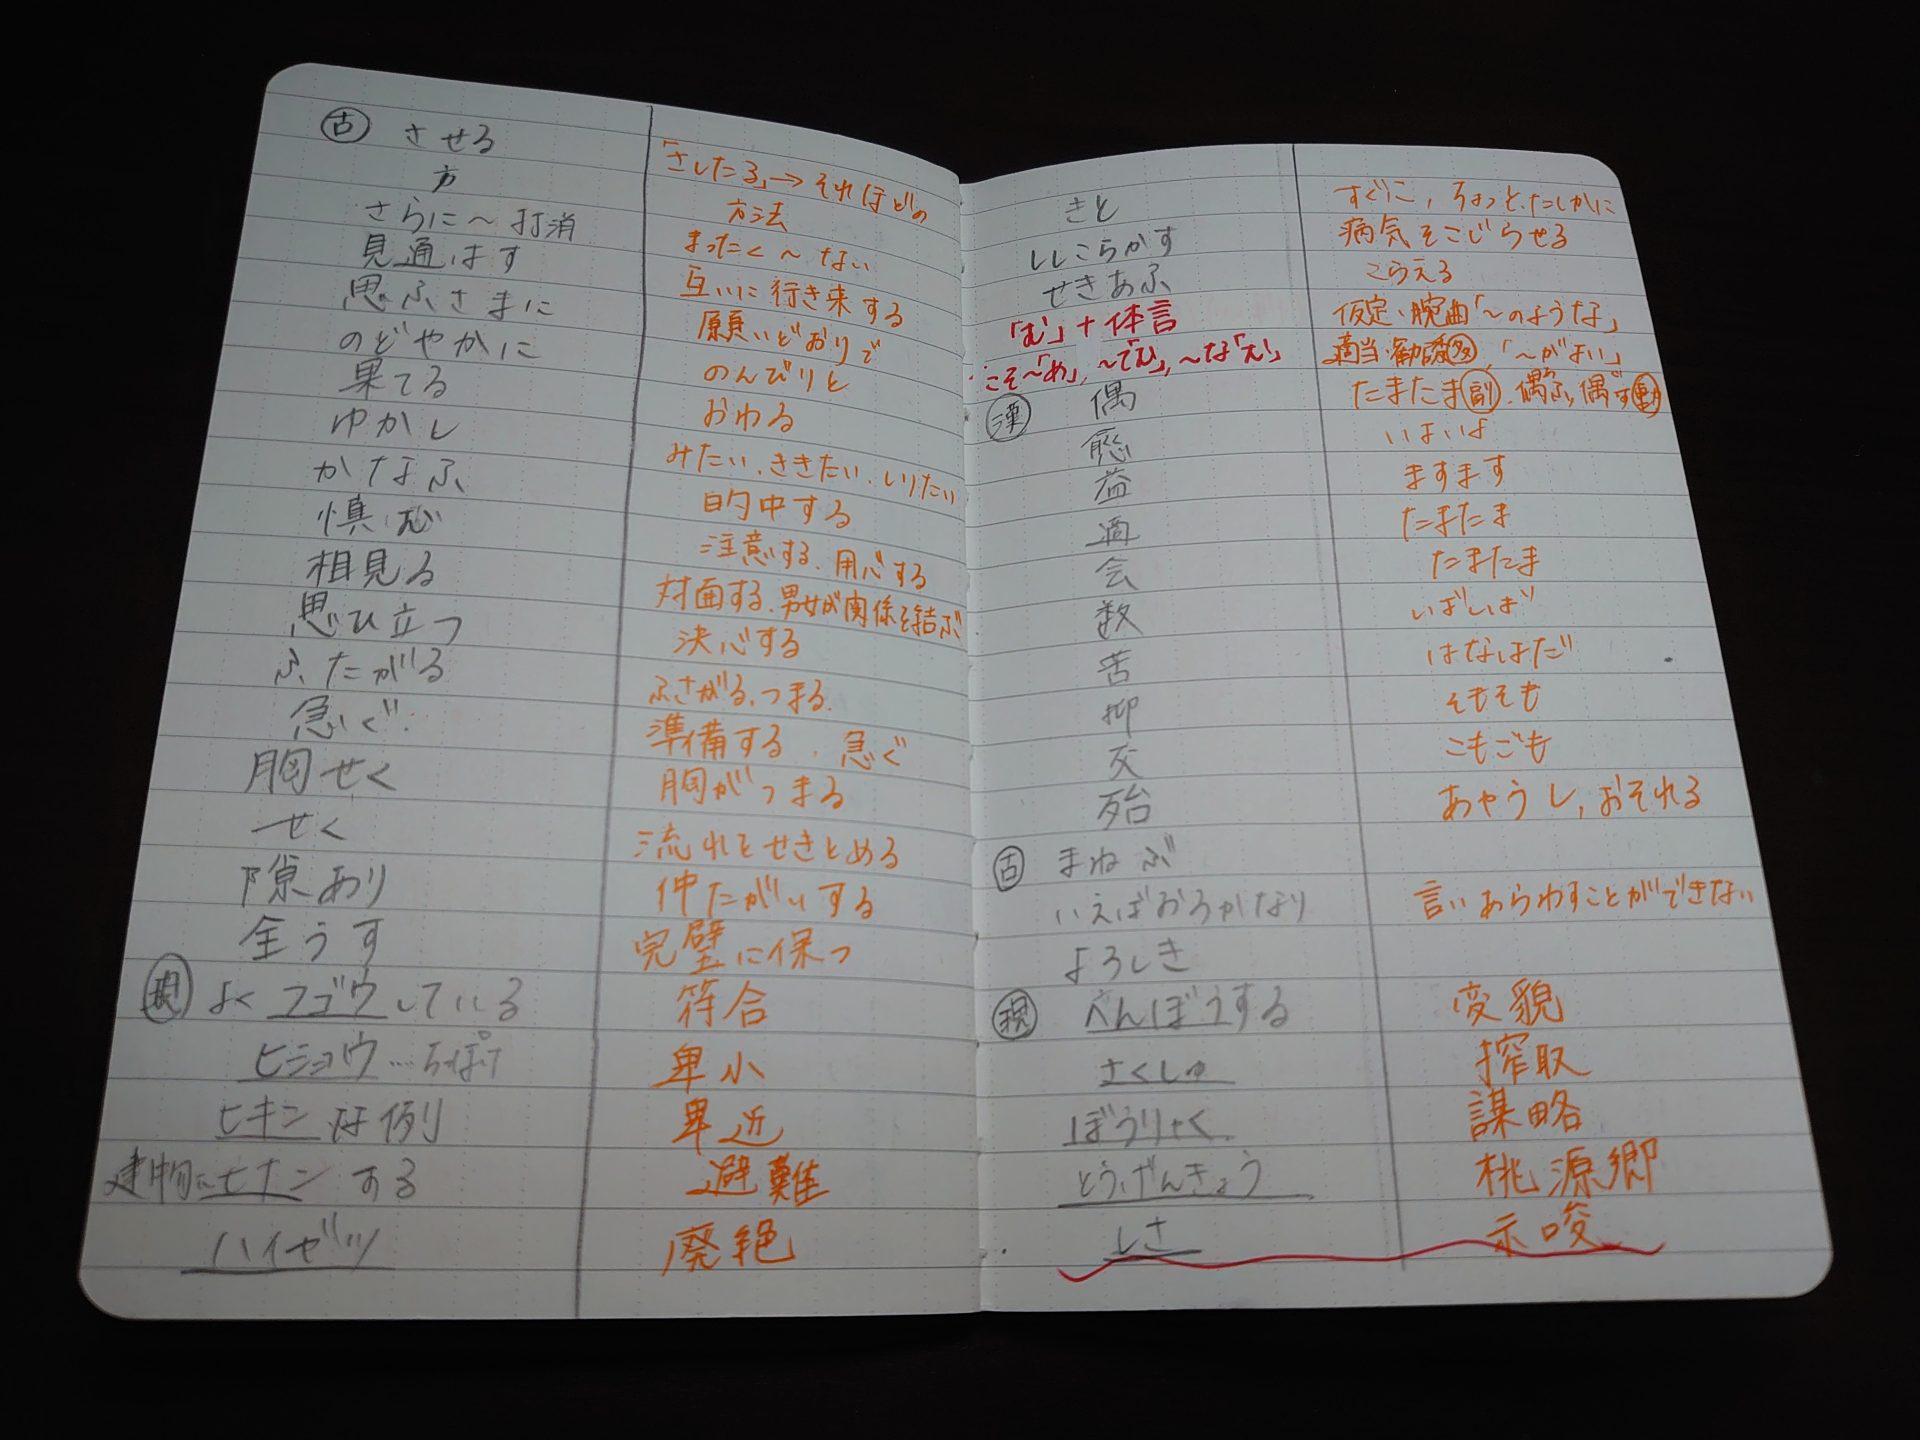 古 させる 「さしたる」→それほどの
方 方法
さらに〜打消 まったく〜ない
見通はす 互いに行き来する
思ふさまに 願いどおりで
のどやかに のんびりと
果てる おわる
ゆかし みたい、ききたい、しりたい
かなふ 的中する
慎む 注意する、用心する
相見る 対面する、男女が関係を結ぶ
思ひ立つ 決心する
ふたがる ふさがる、つまる
急ぐ 準備する、急ぐ
胸せく 胸がつまる
せく 流れをせきとめる
隙あり 仲たがいする
全うす 完璧に保つ
現 よくフゴウしている 符合
ヒショウ…ちっぽけ 卑小
ヒキンな例 卑近
建物にヒナンする 避難
ハイゼツ 廃絶
きと すぐに、ちょっと、たしかに
ししこらかす 病気をこじらせる
せきあふ こらえる
「む」+体言 仮定・腕曲「〜のような」
こそ〜「め」、〜「てむ」、〜な「む」 適当・勧誘 「〜がよい」
漢 偶 たまたま副、偶ふ、偶す動
愈 いよいよ
益 ますます
適 たまたま
会 たまたま
数 しばしば
苦 はなはだ
抑 そもそも
交 こもごも
殆 あやうし、おそれる
古 まねぶ
いえばおろかなり 言いあらわすことができない
よろしき
現 へんぼうする 変貌
さくしゅ 搾取
ぼうりゃく 謀略
とうげんきょう 桃源郷
しさ 示唆